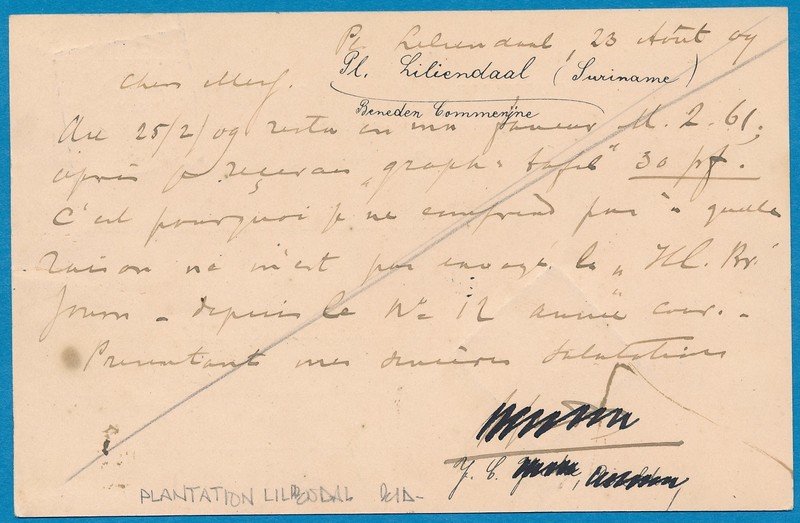 Pl. Liliendaal, 23 Août 09
Pl. Liliendaal (Suriname)
Beneden Commewijne
Chers Mess.
Au 25/2/09 resta en ma faveur M. 2.61,
après je reçevais „graph. tafel" 30 pf.
C'est pourquoi je ne comprend pas à quelle
raison ne m'est pas envoyé le „Ill. Br.
Journ. depuis le No 12 année cour. -
Presentant mes sincères salutations
PLANTATION LILIENDAL